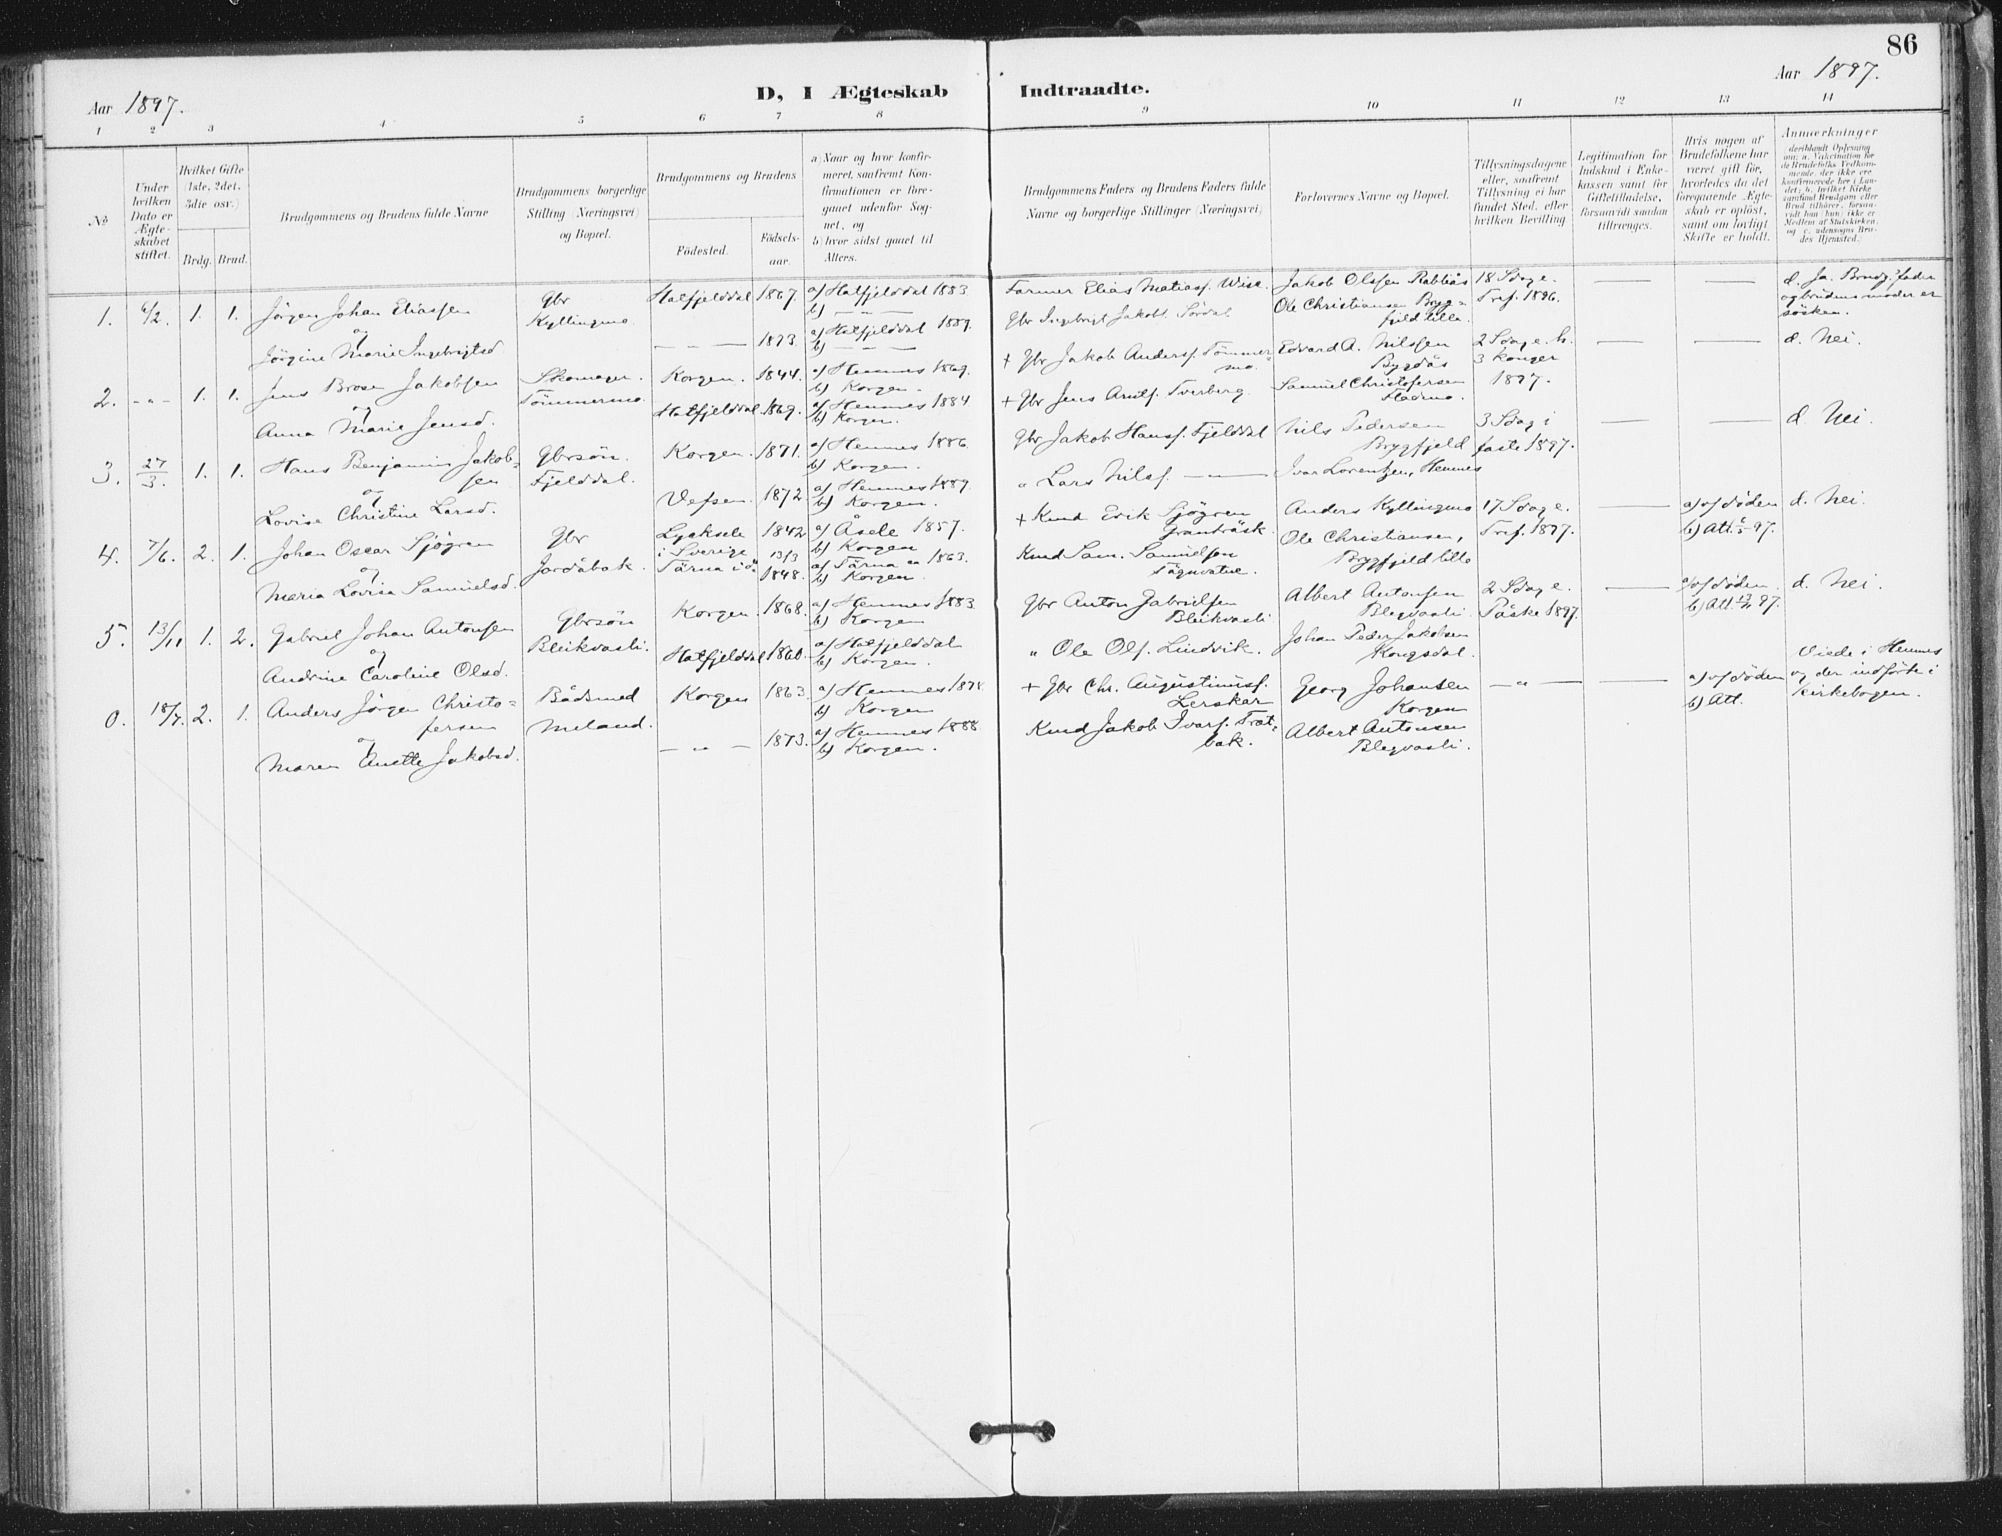 86
Aar 1897.
D, I Ægteskab Indtraadte.
Aar 1897.
1 2 3 4 5 6 7 8 9 10 11 12 13 14
No
Under hvilken Dato er Ægteskabet stiftet.
Hvilket Gifte (1ste, 2det, 3die osv.)
Brdg. Brud.
Brudgommens og Brudens fulde Navne
Brudgommens borgerlige Stilling (Næringsvei) og Bopæl.
Brudgommens og Brudens
Födested.
Födselsaar.
a) Naar og hvor konfirmeret, saafremt Konfirmationen er foregaaet udenfor Sognet, og
b) hvor sidst gaaet til Alters.
Brudgommens Faders og Brudens Faders fulde Navne og borgerlige Stillinger (Næringsvei)
Forlovernes Navne og Bopæl.
Tillysningsdagene eller, saafremt Tillysning ei har fundet Sted, efter hvilken Bevilling
Legitimation for Indskud i Enkekassen samt for Giftetilladelse, forsaavidt saadan tiltrænges.
Hvis nogen af Brudefolkene har været gift før, hvorledes da det foregaaende Ægteskab er oplöst, samt om lovligt Skifte er holdt.
Anmærkninger
1. 6/2 1. 1.
Jörgen Johan Eliassen
og
Jörgine Marie Ingebrigtsd
Gbr
Kyllingmo
Hatfjelddal 1867. a) Hatfjelddal 1883
b) — " —
— " — 1873. a) Hatfjelddal 1889.
b) — " —
Farmer Elias Matiass. Wisc.
Gbr Ingebrigt Jakobs. Sördal
Jakob Olsen Rabliås
Ole Christiansen Brygfjeld lille
18 Sdag e.
Tref. 1896.
d. Ja. Brudg. fader
og brudens moder er
søsken.
2. - " - 1. 1.
Jens Broen Jakobsen
og
Anna Marie Jensd.
Skomager.
Tömmermo
Korgen. 1844. a) Hemnes 1869.
b) Korgen.
Hatfjelddal 1869. a) Hemnes 1884
b) Korgen.
+ Gbr Jakob Anders. Tömmermo.
+ Gbr Jens Arnts. Tverberg.
Edvard A. Nilssen
Bygdås
Samuel Christofersen
2 Sdag e. h.
3 konger
1897.
d. Nei.
3. 27/3. 1. 1.
Hans Benjamin Jakobsen
og
Lovise Christine Larsd.
Gbrsön.
Fjelddal.
Korgen. 1871. a) Hemnes 1886.
b) Korgen.
Vefsen 1872 a) Hemnes 1889.
b) Korgen.
Gbr Jakob Hans. Fjelddal
" Lars Nils. — " —
Nils Pedersen
Brygfjeld
Ivar Lorentzen, Hemnes
3 Sdag i
faste 1897.
d. Nei.
4. 7/6. 2. 1.
Johan Oscar Sjögren
og
Maria Lovisa Samuelsd.
Gbr
Jordåbak.
Lycksele 1842 a) Åsele 1857.
i Sverige 13/3 b) Korgen
Tärna i do 1848. a) Tärna ca 1863.
b) Korgen.
+ Knud Erik Sjögren
Granträsk
Knud Sam. Samuelsen
Anders Kyllingmo
Ole Christiansen,
Brygfjeld lille
17 Sdag e.
Tref. 1897.
a) v/ döden
b) Att.
d. Nei
5. 13/11 1. 2.
Gabriel Johan Antonsen
og
Andrine Caroline Olsd.
Gbrsön
Bleikvasli.
Korgen 1868. a) Hemnes 1883.
b) Korgen
Hatfjelddal 1860. a) Hatfjelddal
b) Korgen.
Gbr Anton Gabrielsen
Bleikvasli
" Ole Ols. Lindvik.
Albert Antonsen
Blegvasli
Johan Peder Jakobsen
Kongsdal.
2 Sdag e.
Påske 1897.
a) v/ döden.
b) Att.
d. Nei.
0. 18/7. 2. 1.
Anders Jörgen Christofersen
og
Maren Anette Jakobsd.
Bådsmed
Meland.
Korgen 1863. a) Hemnes 1878
b) Korgen
— " — 1873. a) Hemnes 1888
b) Korgen.
+ Gbr Chr. Augustinuss.
Lerskar
Knud Jakob Ivars. Tratbak.
Georg Johansen
Korgen
Albert Antonsen
Blegvasli.
— " —
a) v/ döden
b) Att.
Viede i Hemnes
og der indförte i
Kirkebogen.